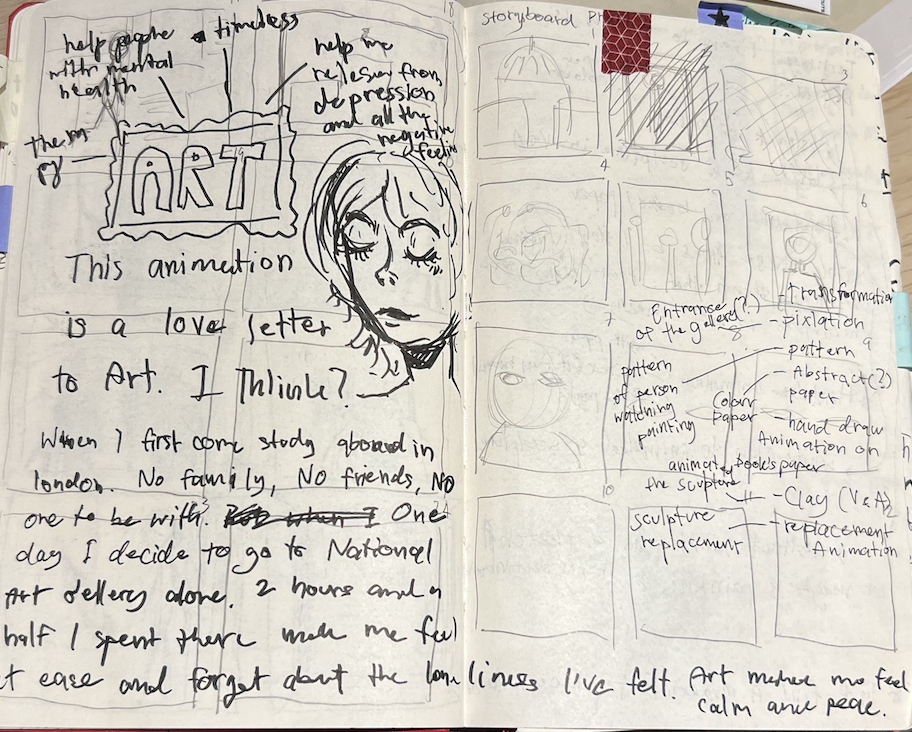 help people
with mental
health
timeless
help me
from
depression
and all the
negative
feelin
ART
This animation
is a love letter
to Art. I Thinke?
When I first come study aboard in
london. No family, No friends, No
one to be with. One
day I decide to go to National
Art Gellery alone. 2 hours and a
half I spent there make me feel
t ease and forget about the loneliness I've felt. Art makes me feel
calm and peace.
Storyboard
3
4
5
6
7
8
9
10
Entranse(?)
of the gallery
pattern
of person
watching
painting
Colour
paper
animat
the sculpture
sculpture
replacement
- transformation
- pixlation
- pattern
- Abstract(?)
paper
- hand draw
Animation on
book's paper
- Clay (V&A)
- replacement
Animation